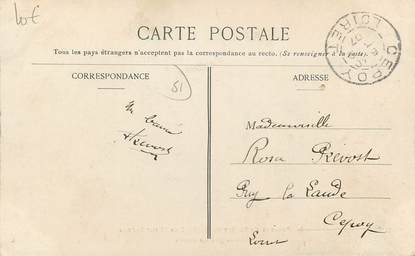 10€
CARTE POSTALE
Tous les pays étrangers n'acceptent pas la correspondance au recto. (Se renseigner à la poste).
CORRESPONDANCE
51
ADRESSE
CEPOY
LOIRET
07
Mademoiselle
Rosa Prévost
Puy la Laude
Cepoy
Loiret
Prévost